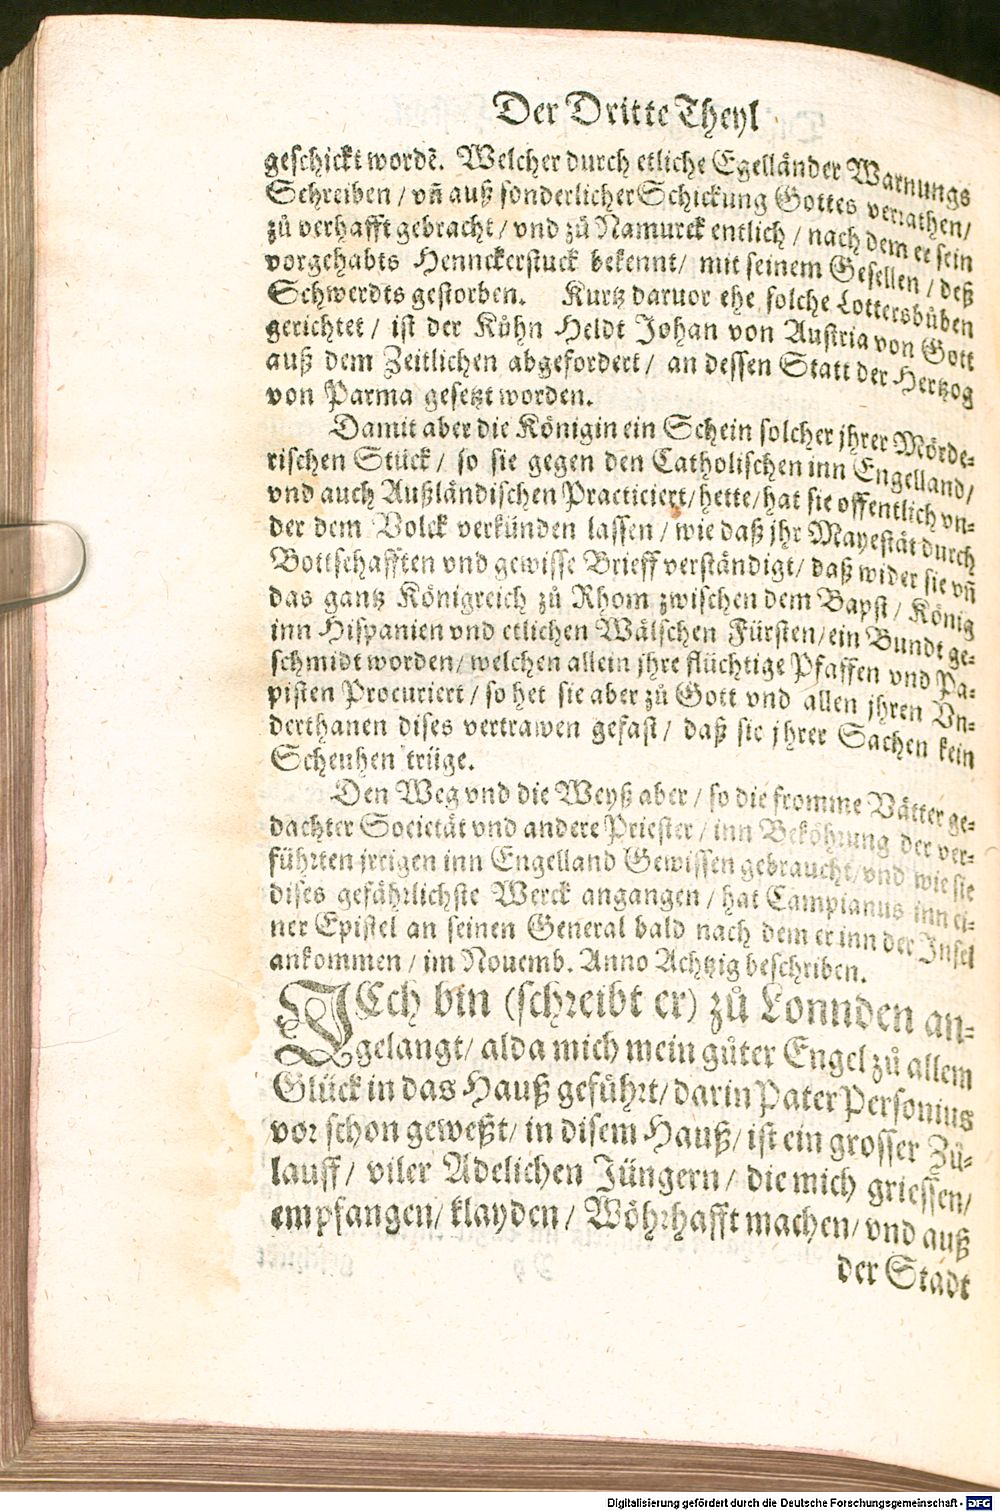 Der Dritte Theyl
geschickt wordẽ. Welcher durch etliche Egelländer Warnungs
Schreiben / vñ auß sonderlicher Schickung Gottes verrathen /
zů verhafft gebracht / vnd zů Namurck entlich / nach dem er sein
vorgehabts Hennckerstuck bekennt / mit seinem Gesellen / deß
Schwerdts gestorben. Kurtz daruor ehe solche Lottersbůben
gerichtet / ist der Kühn Heldt Johan von Austria von Gott
auß dem Zeitlichen abgefordert / an dessen Statt der Hertzog
von Parma gesetzt worden.
Damit aber die Königin ein Schein solcher jhrer Mörde-
rischen Stück / so sie gegen den Catholischen inn Engelland /
vnd auch Außländischen Practiciert / hette / hat sie offentlich vn-
der dem Volck verkünden lassen / wie daß jhr Mayestät durch
Bottschafften vnd gewisse Brieff verständigt / daß wider sie vñ
das gantz Königreich zů Rhom zwischen dem Bapst / König
inn Hispanien vnd etlichen Wälschen Fürsten / ein Bundt ge-
schmidt worden / welchen allein jhre flüchtige Pfaffen vnd Pa-
pisten Procuriert / so het sie aber zů Gott vnd allen jhren Vn-
derthanen dises vertrawen gefast / daß sie jhrer Sachen kein
Scheuhen trüge.
Den Weg vnd die Weyß aber / so die fromme Vätter ge-
dachter Societät vnd andere Priester / inn Beköhrung der ver-
führten jrrigen inn Engelland Gewissen gebraucht / vnd wie sie
dises gefährlichste Werck angangen / hat Campianus inn ei-
ner Epistel an seinen General bald nach dem er inn der Insel
ankommen / im Nouemb. Anno Achtzig beschriben.
JCch bin (schreibt er) zů Lonnden an-
gelangt / alda mich mein gůter Engel zů allem
Glück in das Hauß geführt / darin Pater Personius
vor schon geweßt / in disem Hauß / ist ein grosser Zů-
lauff / viler Adelichen Jüngern / die mich griessen /
empfangen / klayden / Wöhrhafft machen / vnd auß
der Stadt
Digitalisierung gefördert durch die Deutsche Forschungsgemeinschaft - DFG